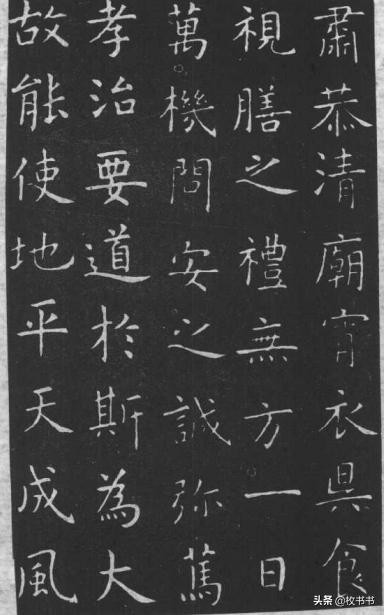 肅恭清廟宵衣昃食
視膳之禮無方一日
萬機問安之誠弥篤
孝治要道於斯為大
故能使地平天成風
头条 @枚书书